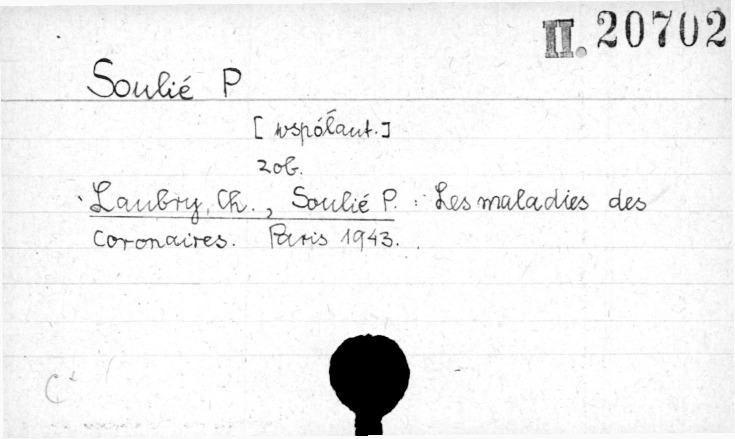 II. 20702
Soulié P
[współaut.]
zob.
Laubry, Ch., Soulié P. : Les maladies des
coronaires. Paris 1943.